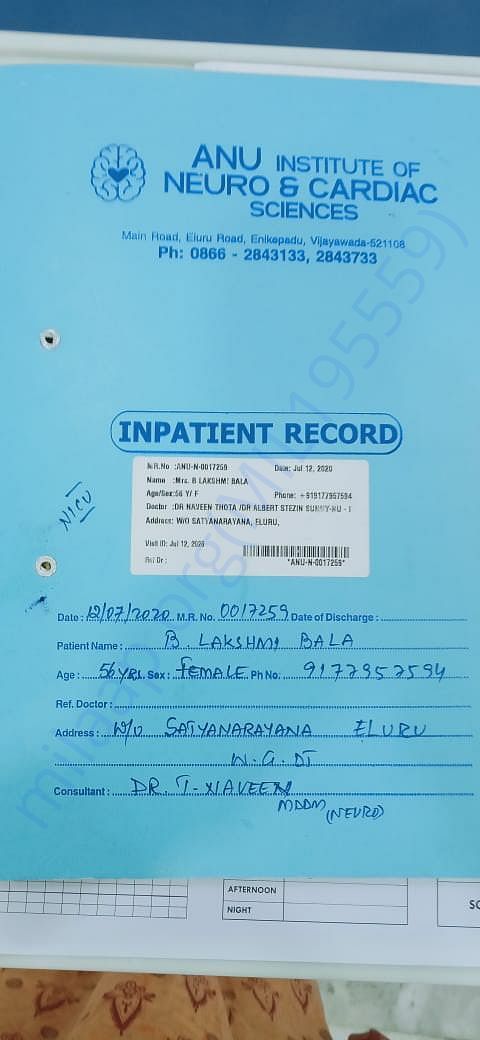 ANU INSTITUTE OF
NEURO & CARDIAC
SCIENCES
Main Road, Eluru Road, Enikepadu, Vijayawada-521108
Ph: 0866 - 2843133, 2843733
INPATIENT RECORD
M.R.No :ANU-N-0017259 Date: Jul 12, 2020
Name :Mrs. B LAKSHMI BALA
Age/Sex:56 Y/ F Phone: +919177957594
Doctor :DR NAVEEN THOTA /DR ALBERT STEZIN SUNNY-NU - I
Address: W/O SATYANARAYANA, ELURU,
Visit ID: Jul 12, 2020
Ref Dr :
*ANU-N-0017259*
NICU
Date: 12/07/2020 M.R. No. 0017259 Date of Discharge :
Patient Name : B. LAKSHMI BALA
Age : 56 YRS. Sex : FEMALE Ph No. 9177957594
Ref. Doctor :
Address : W/O SATYANARAYANA ELURU
W.G. DT
Consultant : DR. T. NAVEEN
MDDM (NEURO)
milaap.org(MIL195559)
AFTERNOON
NIGHT
SC